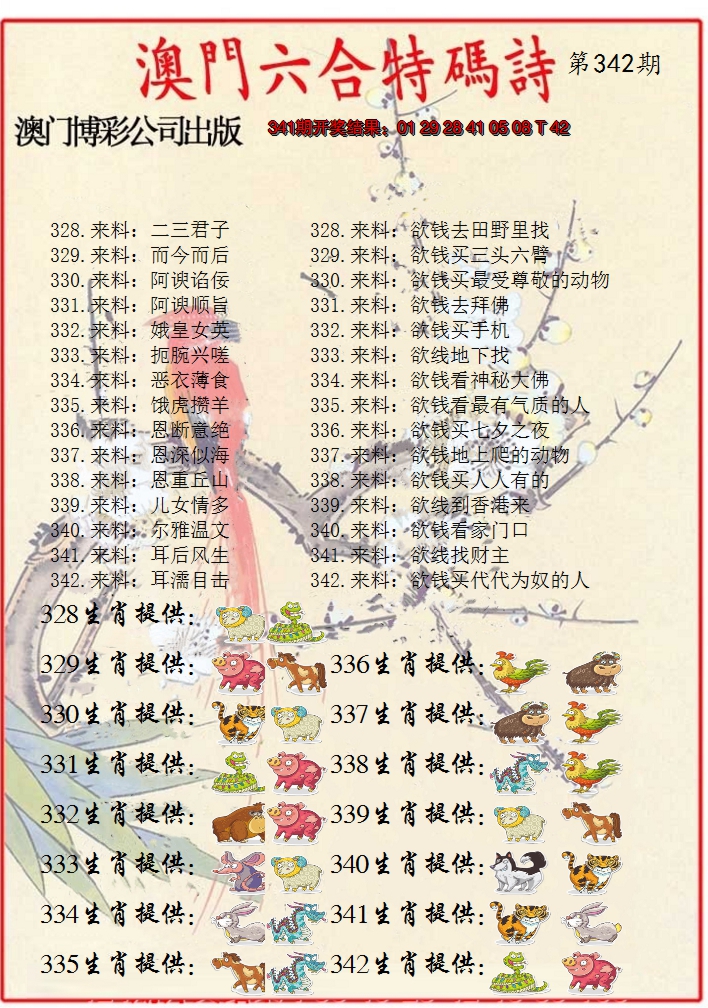 澳門六合特碼詩 第342期
澳门博彩公司出版 341期开奖结果：01 29 28 41 05 08 T 42
328.来料：二三君子 328.来料：欲钱去田野里找
329.来料：而今而后 329.来料：欲钱买三头六臂
330.来料：阿谀谄佞 330.来料：欲钱买最受尊敬的动物
331.来料：阿谀顺旨 331.来料：欲钱去拜佛
332.来料：娥皇女英 332.来料：欲钱买手机
333.来料：扼腕兴嗟 333.来料：欲线地下找
334.来料：恶衣薄食 334.来料：欲钱看神秘大佛
335.来料：饿虎攒羊 335.来料：欲钱看最有气质的人
336.来料：恩断意绝 336.来料：欲钱买七夕之夜
337.来料：恩深似海 337.来料：欲钱地上爬的动物
338.来料：恩重丘山 338.来料：欲钱买人人有的
339.来料：儿女情多 339.来料：欲线到香港来
340.来料：尔雅温文 340.来料：欲钱看家门口
341.来料：耳后风生 341.来料：欲线找财主
342.来料：耳濡目击 342.来料：欲钱买代代为奴的人
328生肖提供：
329生肖提供： 336生肖提供：
330生肖提供： 337生肖提供：
331生肖提供： 338生肖提供：
332生肖提供： 339生肖提供：
333生肖提供： 340生肖提供：
334生肖提供： 341生肖提供：
335生肖提供： 342生肖提供：